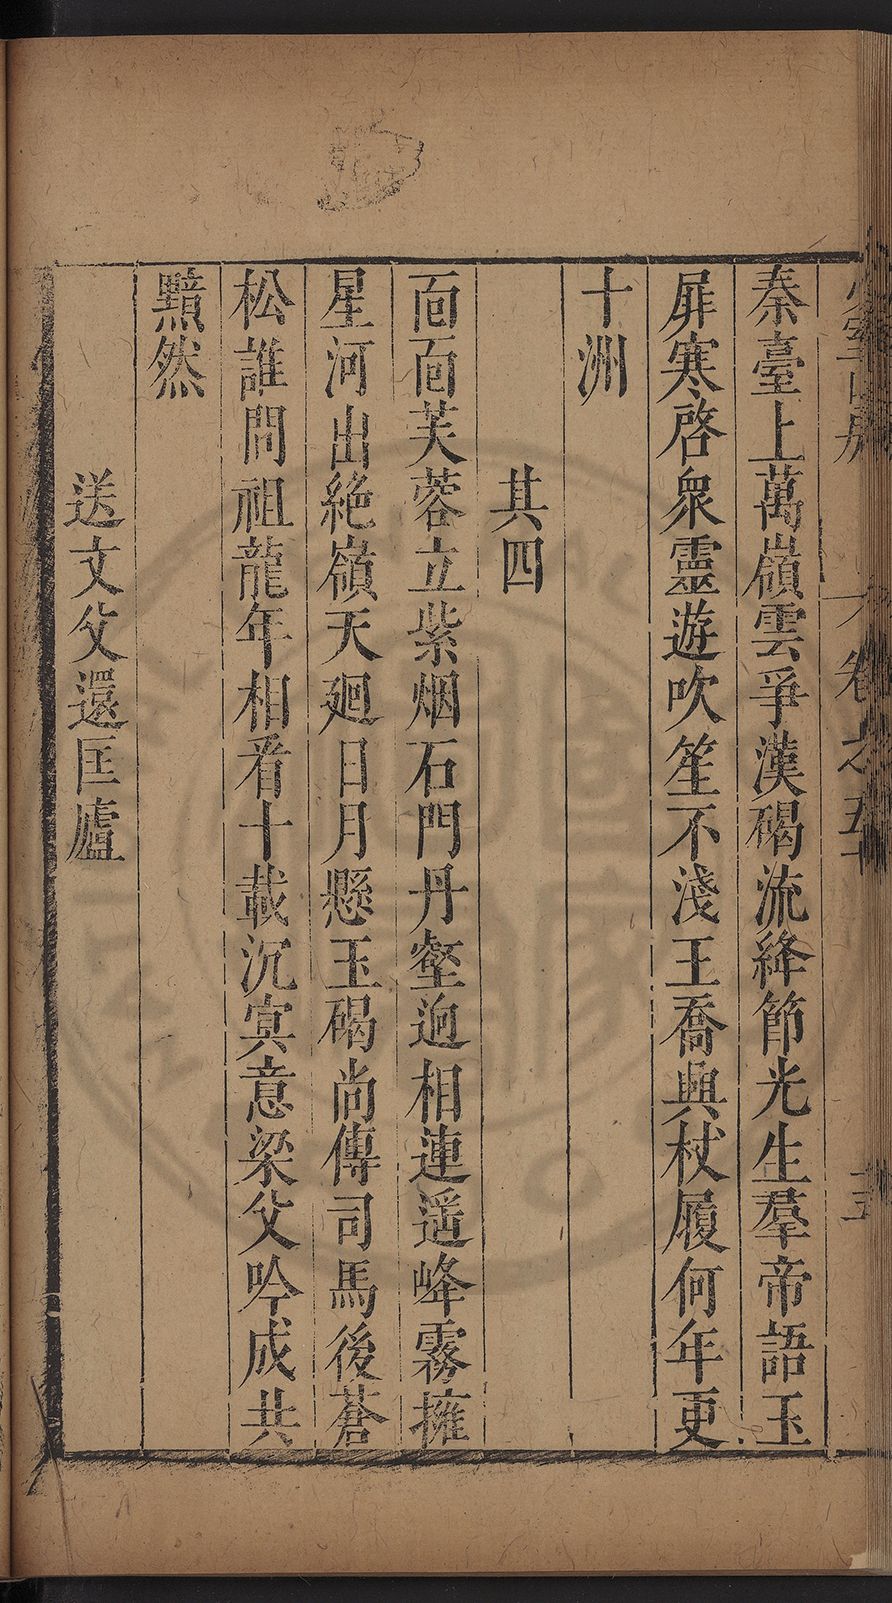 秦臺上萬嶺雲爭漢碣流絳節光生羣帝語玉
扉寒啓衆靈遊吹笙不淺王喬興杖履何年更
十洲
其四
面面芙蓉立紫烟石門丹壑迥相連遥峰霧擁
星河出絶嶺天廻日月懸玉碣尚傳司馬後蒼
松誰問祖龍年相看十載沉冥意梁父吟成共
黯然
送文父還匡廬
卷之五十